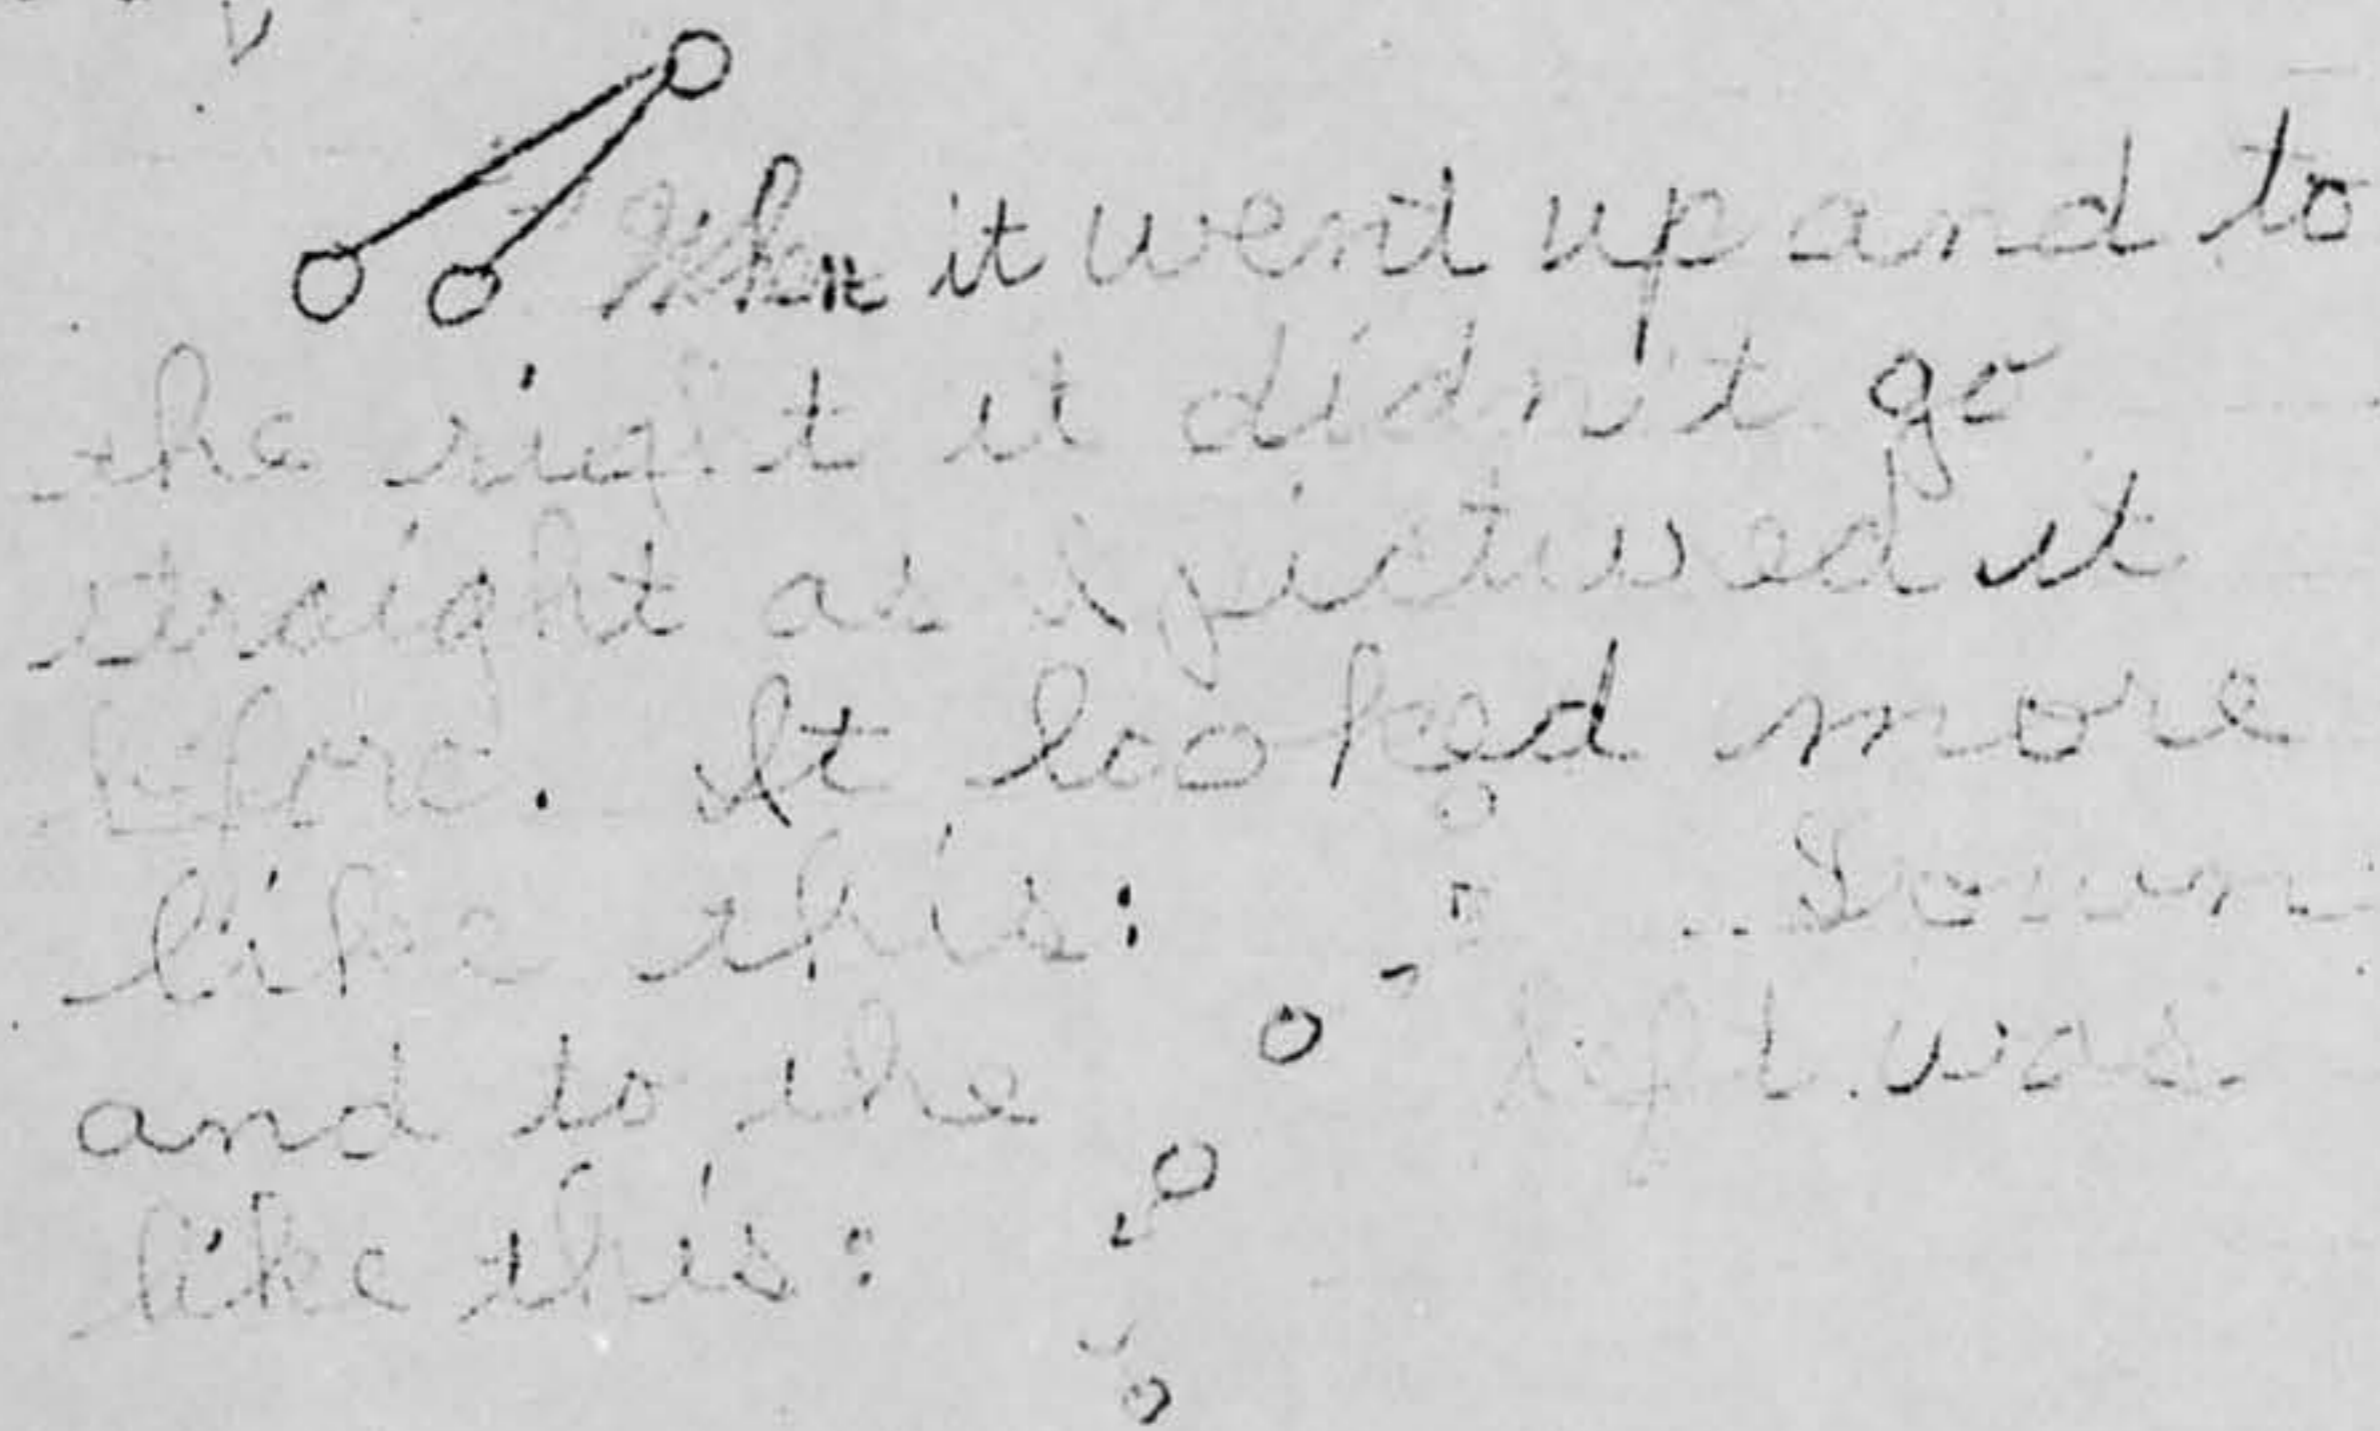 When it went up and to
the right it didn't go
straight as I pictured it
before. It looked more
like this: Down
and to the left was
like this: